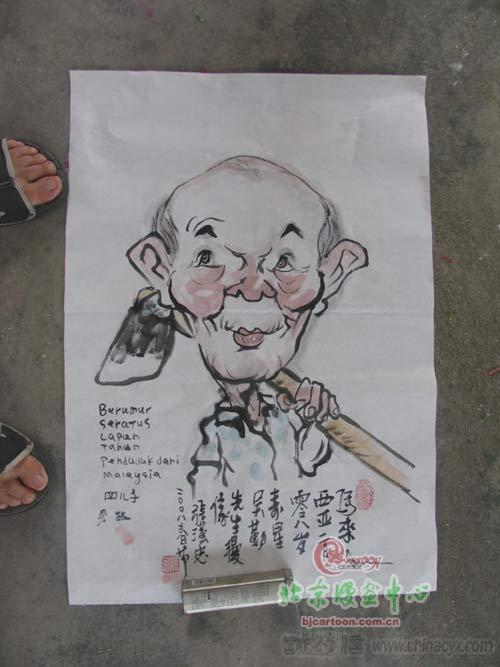 Berumur
seratus
Lapan
Tahun
Penduduk dari
Malaysia
四儿子
来
西亚一
零八岁
寿星
吴勤
先生
像
二〇〇八春节
CARTOON
北京漫画中心
bjcartoon.com.cn
www.chinacyx.com